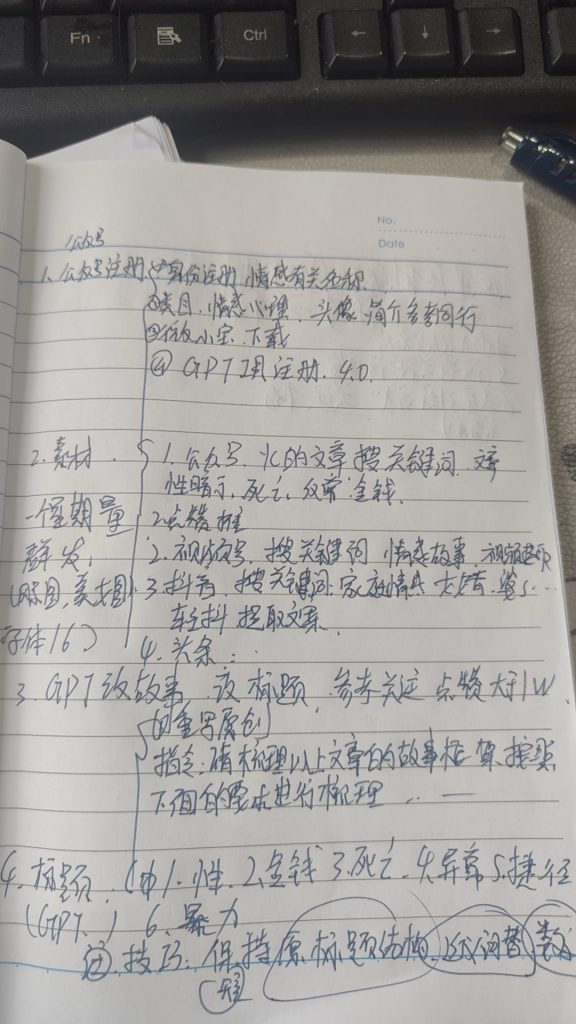 Fn
Ctrl
←
↓
→
No.
Date
公众号
1. 公众号注册 ①身份注册 情感有关名称
②类目. 情感心理. 头像 简介参考同行
③ 小宝 下载
④ GPT 注册. 4.0.
2. 素材. 1. 公众号. 的文章 搜关键词
性暗示, 死亡, 金钱.
一个星期量 2点赞
群发, 2. 视频号, 搜关键词 情感故事. 视频
(原图, 美女图) 3. 抖音. 搜关键词 家庭情感
字体16) 轻抖 提取文案.
4. 头条..
3. GPT改故事 改标题. 参考关注 点赞大于1W
的重写原创
指令: 请梳理以上文章的故事框架, 按照
下面的要求进行梳理 .. —
4. 标题. ① 1. 性. 2. 金钱 3. 死亡. 4. 异常 5. 捷径
(GPT.) 6. 暴力
② 技巧: 保持原标题结构, 词替